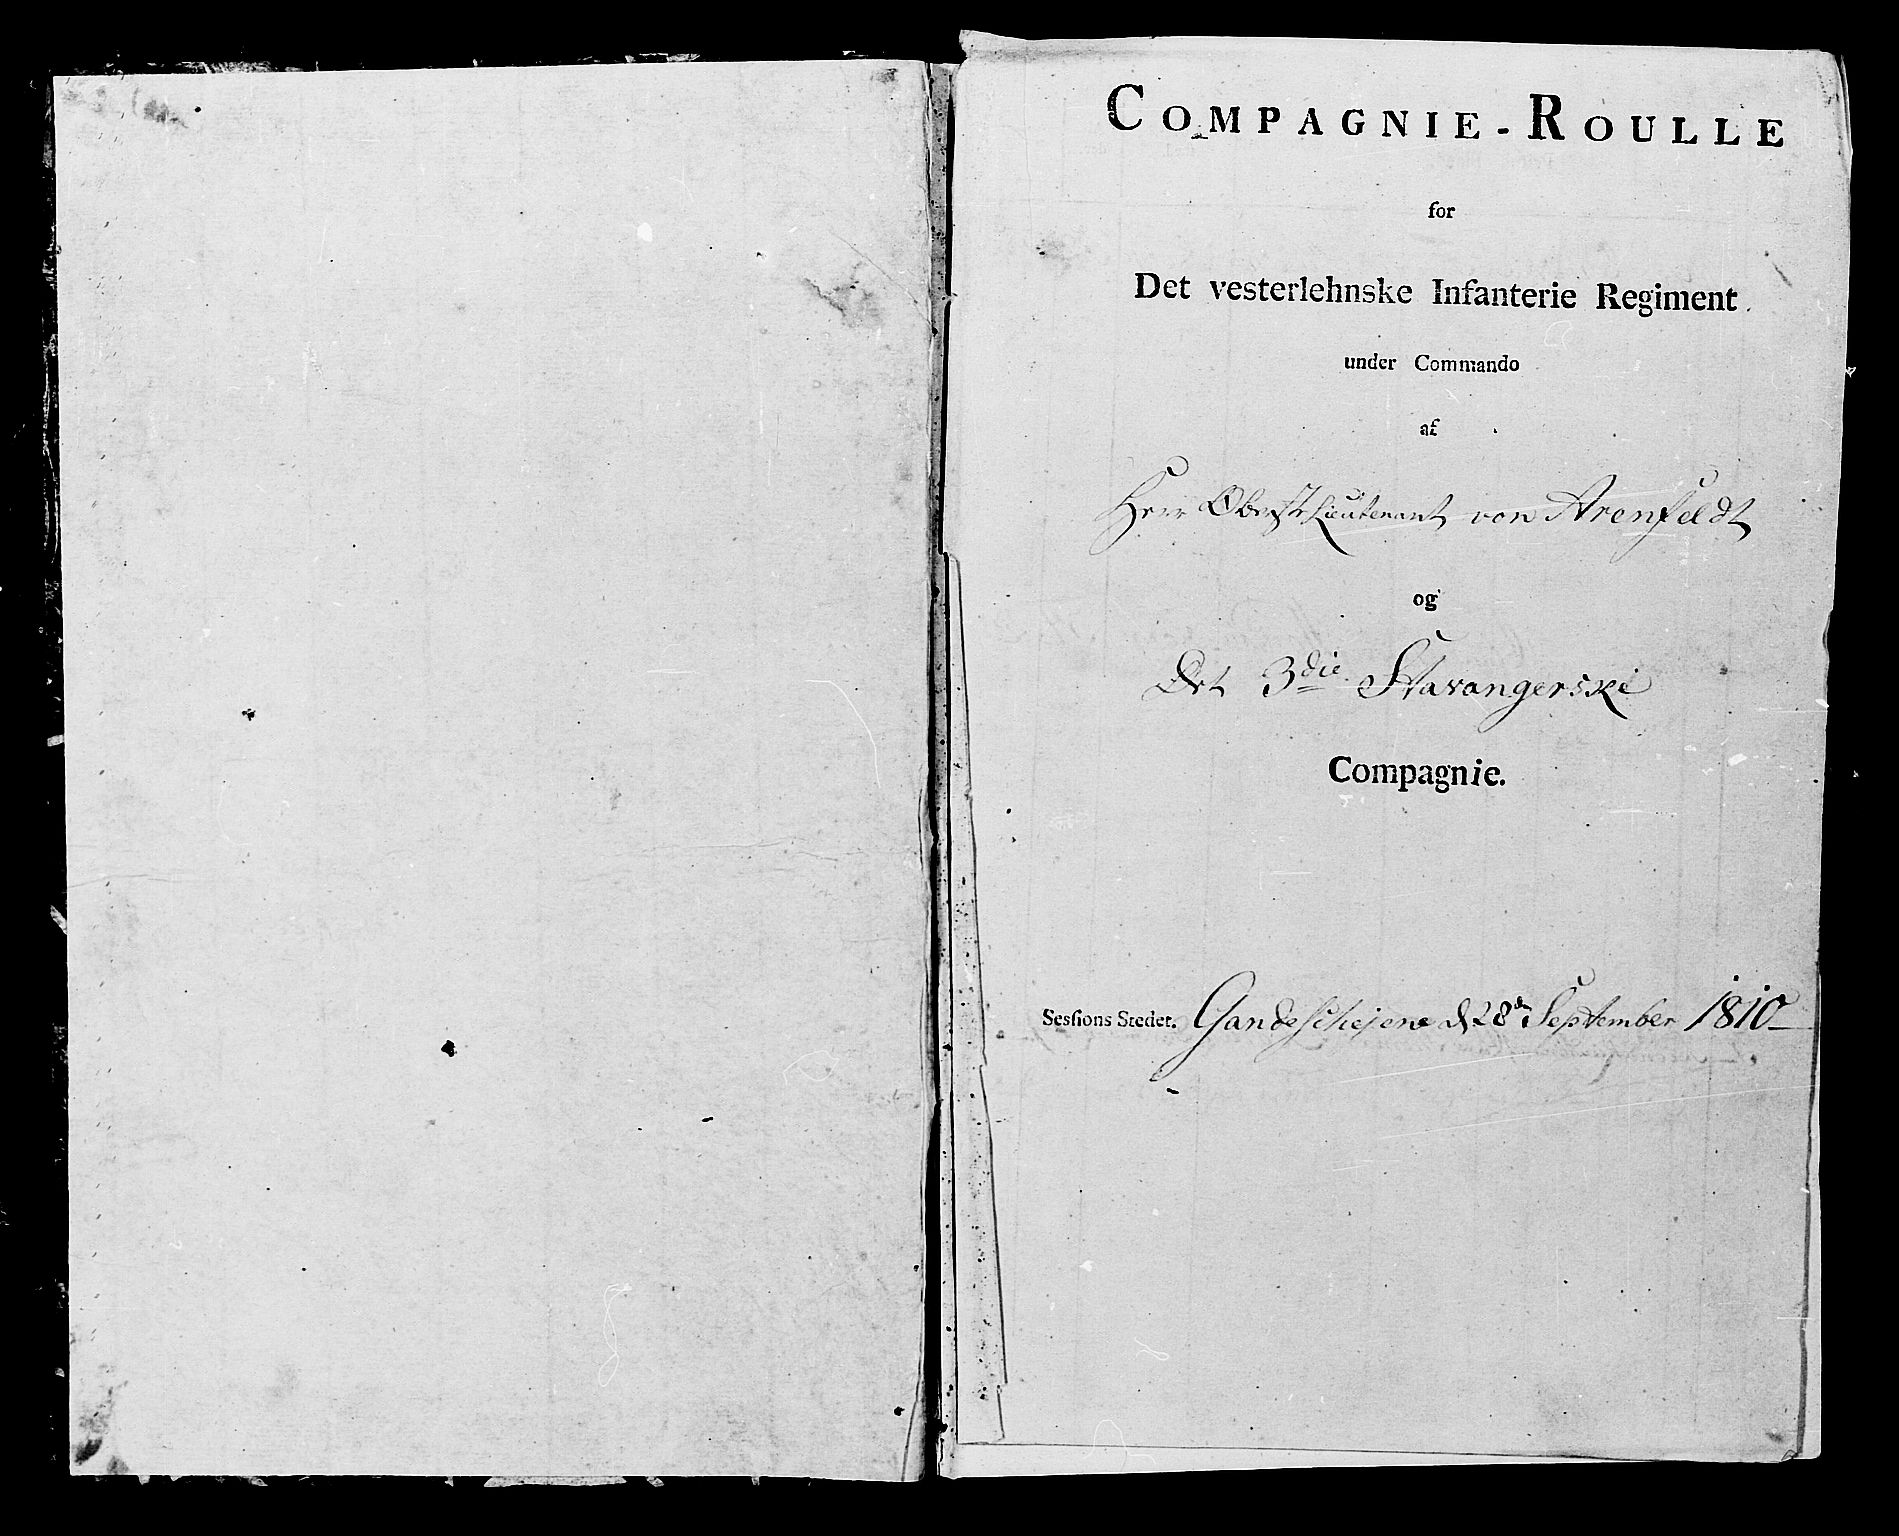 COMPAGNIE-ROULLE
for
Det vesterlehnske Infanterie Regiment.
under Commando
af
Herr Oberst Lieutenant von Arenfeldt
og
Det 3die Stavangerske
Compagnie.
Sessions Stedet. Gandeschejene d. 28de September 1810